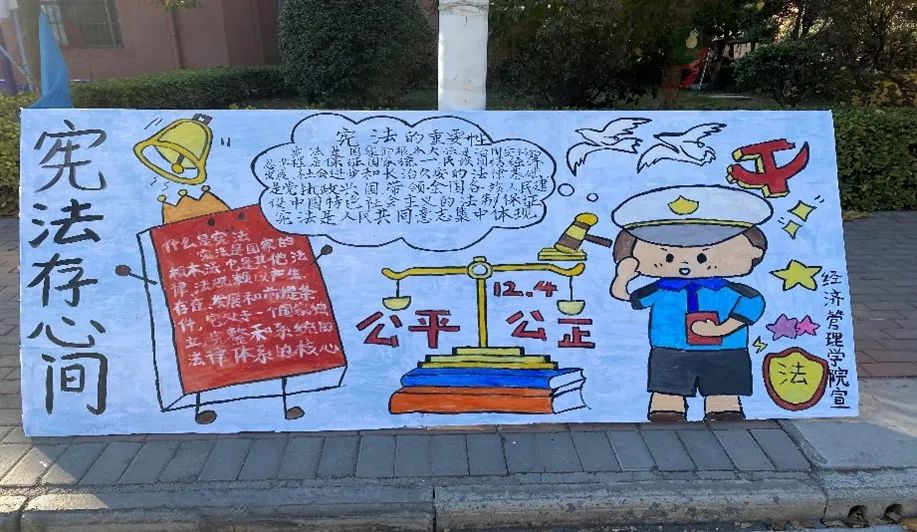 宪法存心间
宪法的重要性
宪法是国家的根本大法
总章程是保证国家统一民族团结经济
发展社会进步和长治久安的法律基础
是党执政兴国带领全国各族人民建
设中国特色社会主义的法制保证
宪法是人民共同意志集中体现
什么是宪法
宪法是国家的
根本法,它是其他法
律法规赖以产生
存在发展和前提条
件,它处于一个国家独
立完整和系统的
法律体系的核心
12.4
公平 公正
法
经济管理学院宣